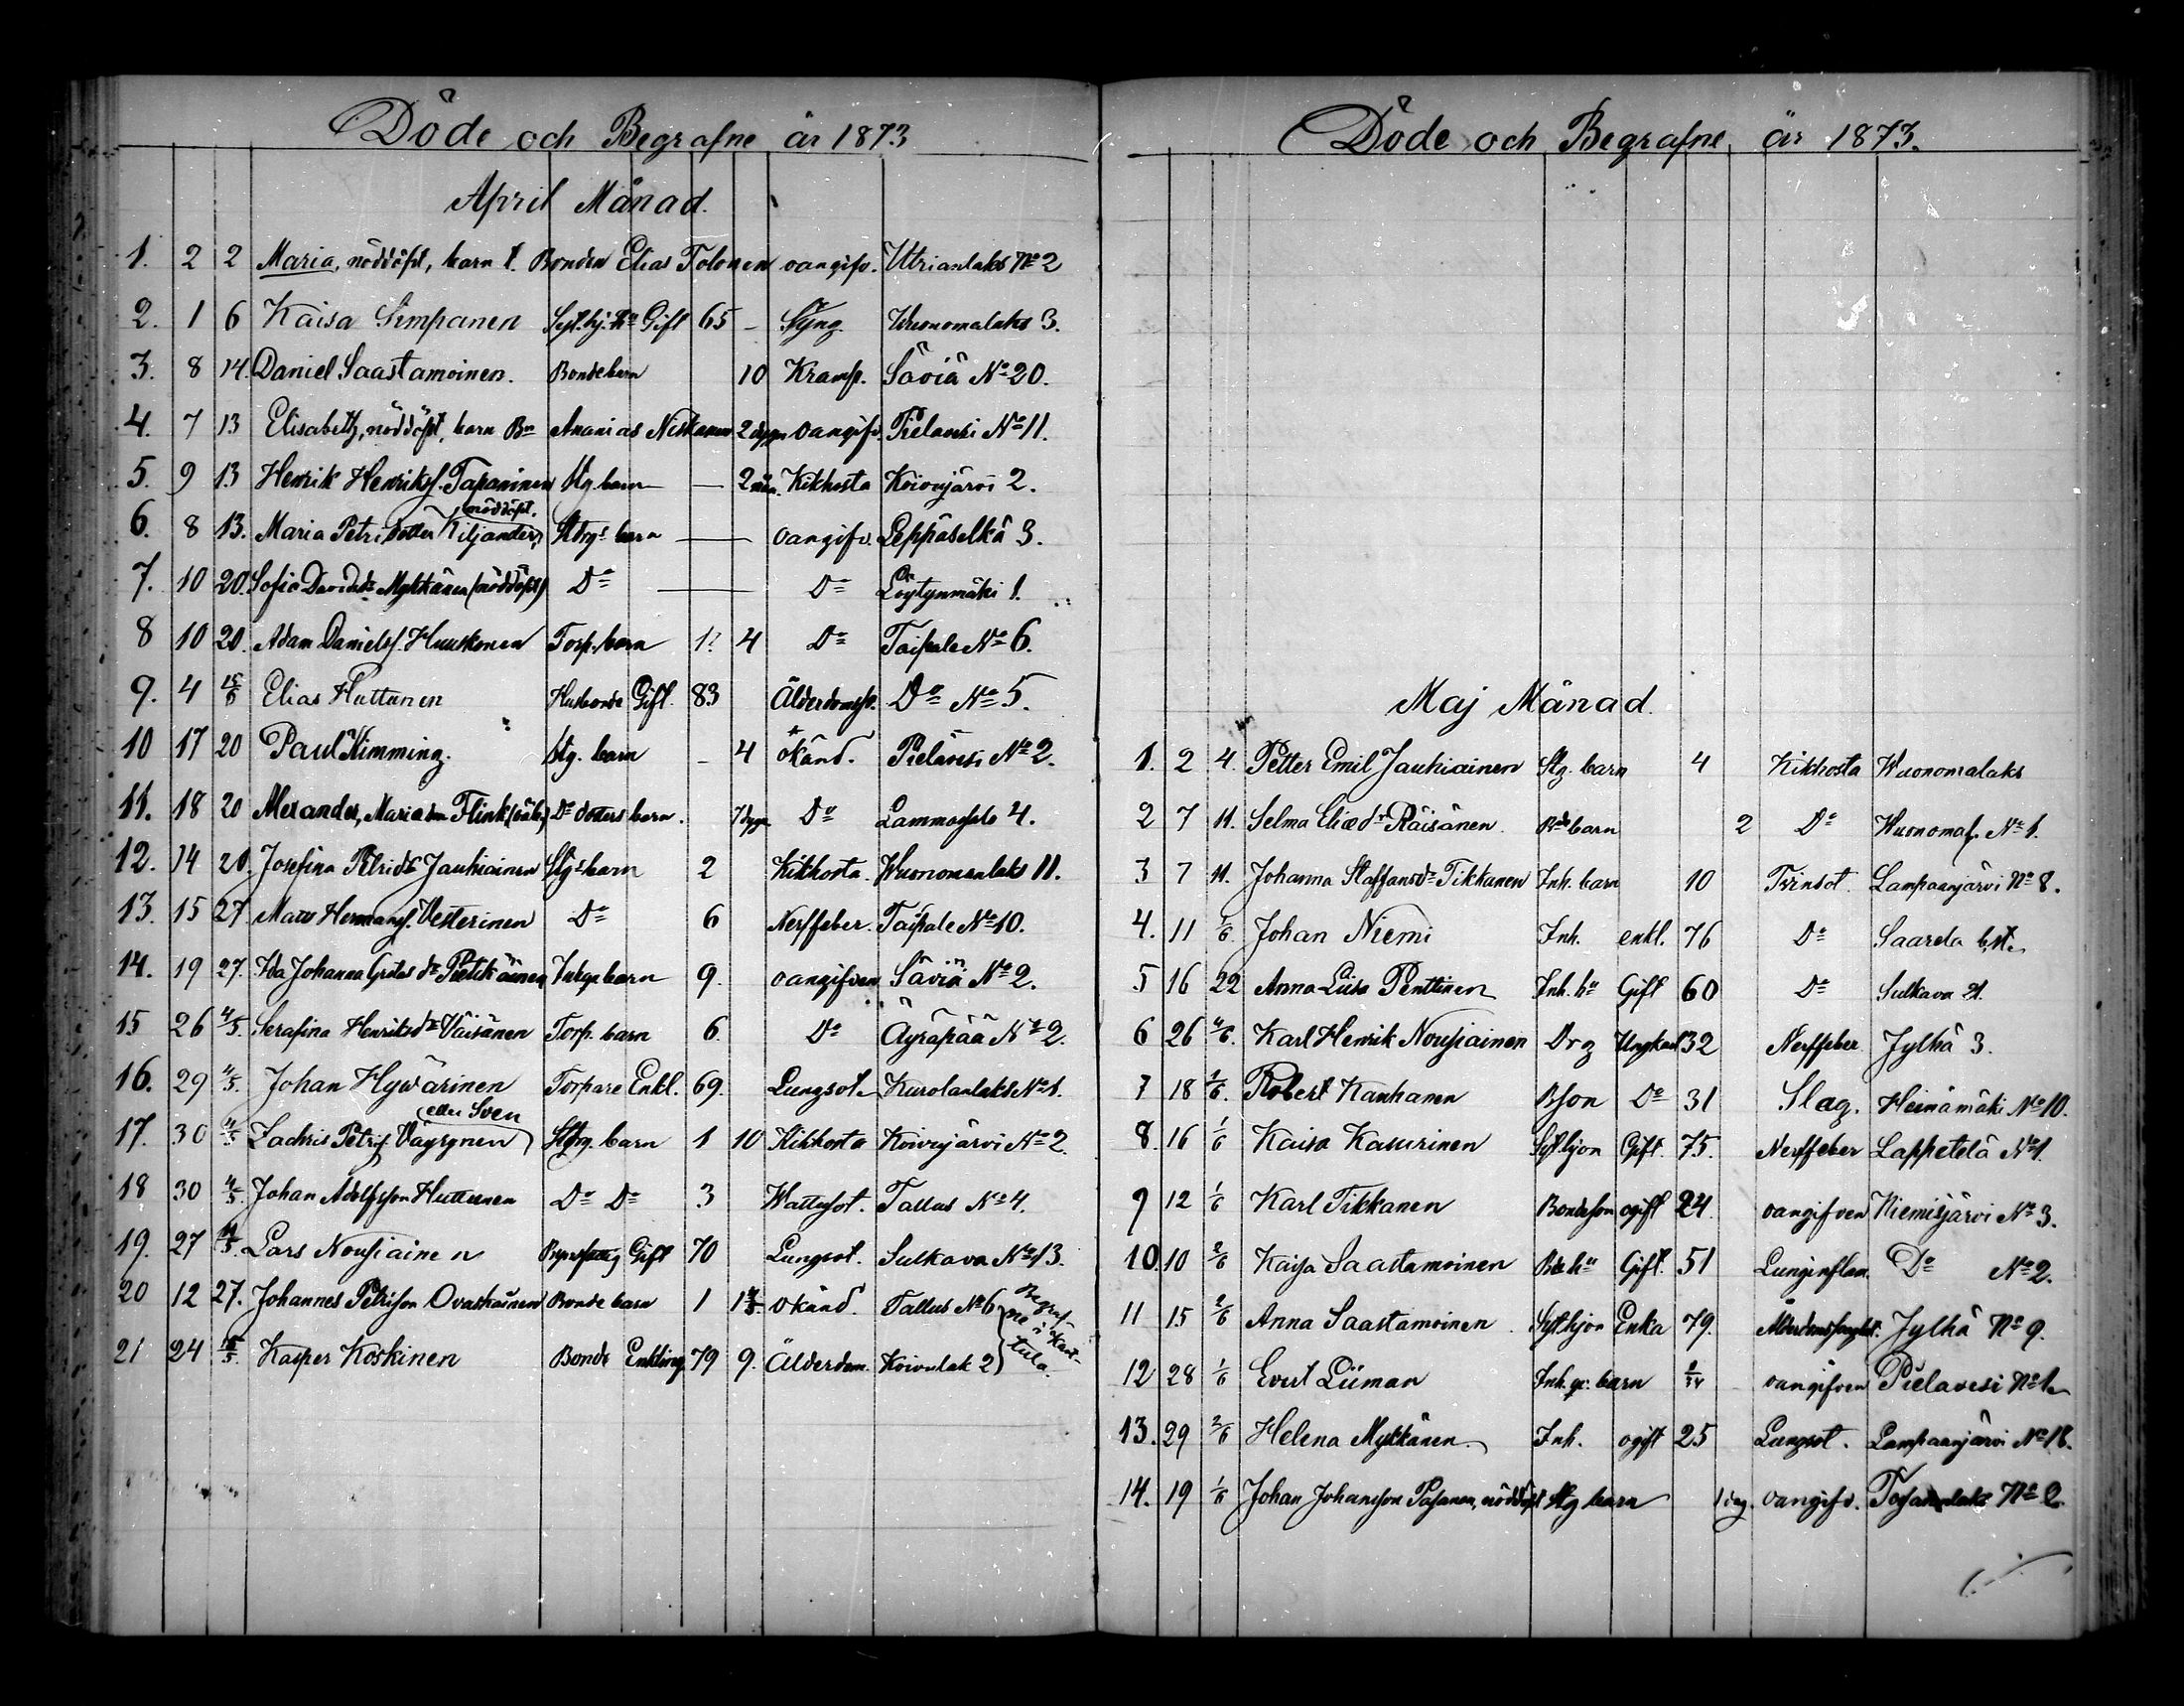 Döde och Begrafne år 1873
April Månad.
1. 2 2 Maria, nöddöpt, barn t. Bonden Elias Tolonen oangifv. Utrianlaks No 2
2. 1 6 Kaisa Simpanen Gift 65 - Wuonomalaks 3.
3. 8 14. Daniel Saastamoinen. Bondebarn 10 Kramp. Säviä No 20.
4. 7 13 Elisabeth, nöddöpt, barn Bn Ananias Niskanen 2 dygn oangifv. Pielavesi No 11.
5. 9 13 Henrik Henrikss. Tapaninen Stg. barn — 2 mån. Kikhosta Koivujärvi 2.
6. 8 13. Maria Petri dotter Kiljander, nöddöpt. barn — oangifv. Leppäselkä 3.
7. 10 20. Sofia Davidsdr Mykkänen (nöddöpt) Do — Do Löytynmäki 1.
8 10 20. Adam Danielss. Huuskonen Torp. barn 1? 4 Do Taipale No 6.
9. 4 Elias Huttunen Husbonde Gift. 83 Ålderdomsv. Do No 5.
10 17 20 Paul Kimming. Stg. barn - 4 okänd. Pielavesi No 2.
11. 18 20 Alexander, Maria Flink (oäk.) Do dotters barn. 7 dygn Do Lammassalo 4.
12. 14 20. Josefina Petridr Jauhiainen Stgs barn 2 Kikhosta. Wuonomanlaks 11.
13. 15 27. Mats Hermanss. Vesterinen Do 6 Nerffeber. Taipale No 10.
14. 19 27. Ida Johanna Gretas dr Pietikäinen Inhys barn 9. oangifven Säviä No 2.
15 26 4/5. Serafina Henriksdr Väisänen Torp. barn 6. Do Äyräpää No 2.
16. 29 4/5. Johan Hyvärinen Torpare Enkl. 69. Lungsot Kurolanlaks No 1.
17. 30 4/5 Zachris Petriss. Väyrynen eller Sven barn 1 10 Kikhosta Koivujärvi No 2.
18 30 4/5. Johan Adolfsson Huttunen Do Do 3 Wattusot. Tallus No 4.
19. 27 Lars Nousiainen Gift 70 Lungsot. Sulkava No 13.
20 12 27. Johannes Petrisson Ovaskainen Bonde barn 1 okänd. Tallus No 6
21 24 Kasper Koskinen Bonde Enkling 79 9. Ålderdom. Koivulak 2
Begraf-
ne i Kart-
tula.
Döde och Begrafne år 1873.
Maj Månad.
1. 2 4. Petter Emil Jauhiainen Stg. barn 4 Kikhosta Wuonomalaks
2 7 11. Selma Eliædr Räisänen. Bde barn 2 Do Wuonomal. No 1.
3 7 11. Johanna Staffansdr Tikkanen Inh. barn 10 Tvinsot. Lampaanjärvi No 8.
4. 11 1/6. Johan Niemi Inh. enkl. 76 Do Saarela
5 16 22 Anna Liisa Penttinen Inh. hu Gift 60 Do Sulkava 21.
6 26 Karl Henrik Nousiainen Drg Ungkarl 32 Nerffeber Jylhä 3.
7 18 1/6. Robert Kauhanen Bson Do 31 Slag. Heinämäki No 10.
8. 16 1/6 Kaisa Kasurinen Sythjon Gift. 75. Nerffeber Lappetelä No 1.
9 12 1/6 Karl Tikkanen Bondeson ogift 24. oangifven Niemisjärvi No 3.
10. 10 2/6 Kaisa Saastamoinen Bde hu Gift. 51 Lunginflam. Do No 2.
11 15 2/6 Anna Saastamoinen Sythjon Enka 79. Jylhä No 9.
12 28 1/6 Evert Liiman Inh. barn oangifven Pielavesi No 1.
13. 29 2/6 Helena Mykkänen Inh. ogift 25 Lungsot. Lampaanjärvi No 18.
14. 19 1/6 Johan Johansson Pasanen, nöddöpt Stg barn 1 dag. oangifv. No 2.